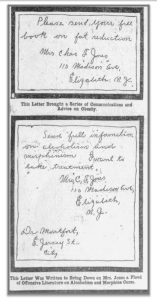 Please send your full
book on fat reduction
Mrs Chas E Jones
110 Madison Ave,
Elizabeth N.J.
This Letter Brought a Series of Communications and
Advice on Obesity.
Send full information
on alcoholism and
morphinism I want to
take treatment.
Mrs C. E. Jones
110 Madison Ave,
Elizabeth,
N.J.
Dr Montfort,
E Jersey St.
City
This Letter Was Written to Bring Down on Mrs. Jones a Flood
of Offensive Literature on Alcoholism and Morphine Cures.